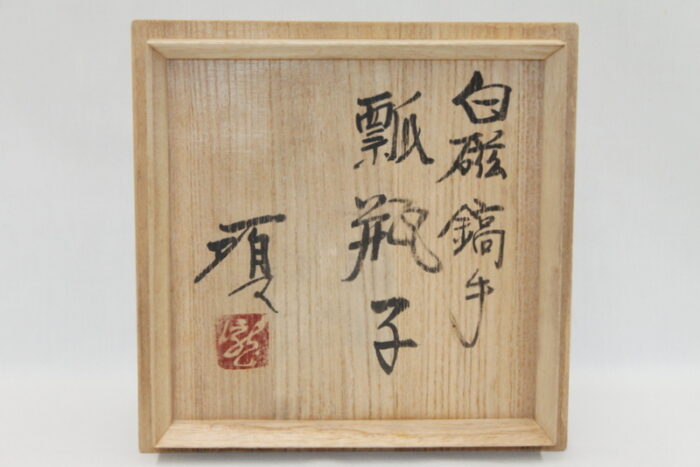 白磁鎬手
瓢瓶子